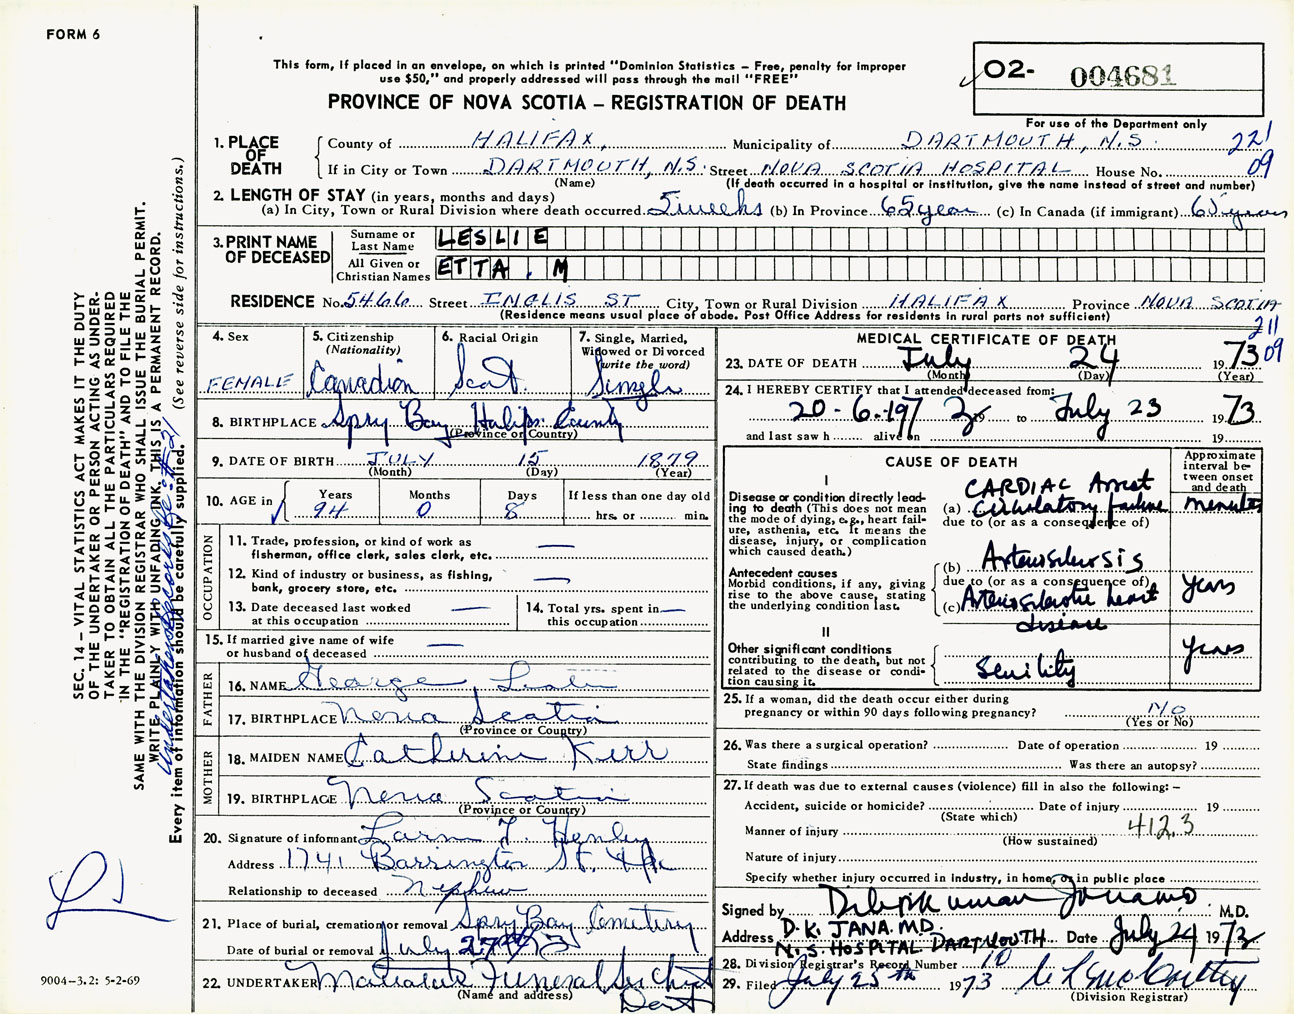 FORM 6
This form, if placed in an envelope, on which is printed "Dominion Statistics – Free, penalty for improper
use $50," and properly addressed will pass through the mail "FREE"
PROVINCE OF NOVA SCOTIA – REGISTRATION OF DEATH
O2- 004681
For use of the Department only
1. PLACE OF DEATH
County of HALIFAX, Municipality of DARTMOUTH, N.S. 221
If in City or Town DARTMOUTH, N.S. Street NOVA SCOTIA HOSPITAL House No. 09
(Name) (If death occurred in a hospital or institution, give the name instead of street and number)
2. LENGTH OF STAY (in years, months and days)
(a) In City, Town or Rural Division where death occurred. 5 weeks (b) In Province 65 years (c) In Canada (if immigrant) 65 years
3. PRINT NAME OF DECEASED
Surname or Last Name LESLIE
All Given or Christian Names ETTA. M
RESIDENCE No. 5466 Street INGLIS ST City, Town or Rural Division HALIFAX Province NOVA SCOTIA
(Residence means usual place of abode. Post Office Address for residents in rural parts not sufficient)
211
09
4. Sex FEMALE
5. Citizenship (Nationality) Canadian
6. Racial Origin Scot.
7. Single, Married, Widowed or Divorced (write the word) Single
8. BIRTHPLACE Spry Bay Halifax County
(Province or Country)
9. DATE OF BIRTH JULY 15 1879
(Month) (Day) (Year)
10. AGE in Years 94 Months 0 Days 8 If less than one day old
hrs. or min.
OCCUPATION
11. Trade, profession, or kind of work as
fisherman, office clerk, sales clerk, etc. —
12. Kind of industry or business, as fishing,
bank, grocery store, etc. —
13. Date deceased last worked
at this occupation —
14. Total yrs. spent in
this occupation —
15. If married give name of wife
or husband of deceased —
FATHER
16. NAME George Leslie
17. BIRTHPLACE Nova Scotia
(Province or Country)
MOTHER
18. MAIDEN NAME Catherine Kerr
19. BIRTHPLACE Nova Scotia
(Province or Country)
20. Signature of informant Henley
Address 1741 Barrington St. Hfx
Relationship to deceased Nephew
21. Place of burial, cremation or removal Spry Bay Cemetery
Date of burial or removal July 27th/73
22. UNDERTAKER Funeral
(Name and address)
Dart
MEDICAL CERTIFICATE OF DEATH
23. DATE OF DEATH July 24 1973
(Month) (Day) (Year)
24. I HEREBY CERTIFY that I attended deceased from:
20-6-1973 to July 23 1973
and last saw h alive on 19
CAUSE OF DEATH
Approximate interval between onset and death
I
Disease or condition directly leading to death (This does not mean the mode of dying, e.g., heart failure, asthenia, etc. It means the disease, injury, or complication which caused death.)
CARDIAC Arrest
(a) Circulatory failure minutes
due to (or as a consequence of)
Antecedent causes
Morbid conditions, if any, giving rise to the above cause, stating the underlying condition last.
(b) Arteriosclerosis
due to (or as a consequence of) years
(c) Arteriosclerotic heart
disease
II
Other significant conditions contributing to the death, but not related to the disease or condition causing it.
Senility years
25. If a woman, did the death occur either during
pregnancy or within 90 days following pregnancy? NO
(Yes or No)
26. Was there a surgical operation? Date of operation 19
State findings Was there an autopsy?
27. If death was due to external causes (violence) fill in also the following: –
Accident, suicide or homicide? Date of injury 19
(State which)
Manner of injury 412.3
(How sustained)
Nature of injury
Specify whether injury occurred in industry, in home, or in public place
Signed by M.D.
D. K. JANA. M.D.
Address N.S. HOSPITAL DARTMOUTH Date July 24 1973
28. Division Registrar's Record Number 10
29. Filed July 25th 1973
(Division Registrar)
SEC. 14 – VITAL STATISTICS ACT MAKES IT THE DUTY
OF THE UNDERTAKER OR PERSON ACTING AS UNDER-
TAKER TO OBTAIN ALL THE PARTICULARS REQUIRED
IN THE "REGISTRATION OF DEATH" AND TO FILE THE
SAME WITH THE DIVISION REGISTRAR WHO SHALL ISSUE THE BURIAL PERMIT.
WRITE PLAINLY WITH UNFADING INK. THIS IS A PERMANENT RECORD.
Every item of information should be carefully supplied. (See reverse side for instructions.)
9004–3.2: 5-2-69